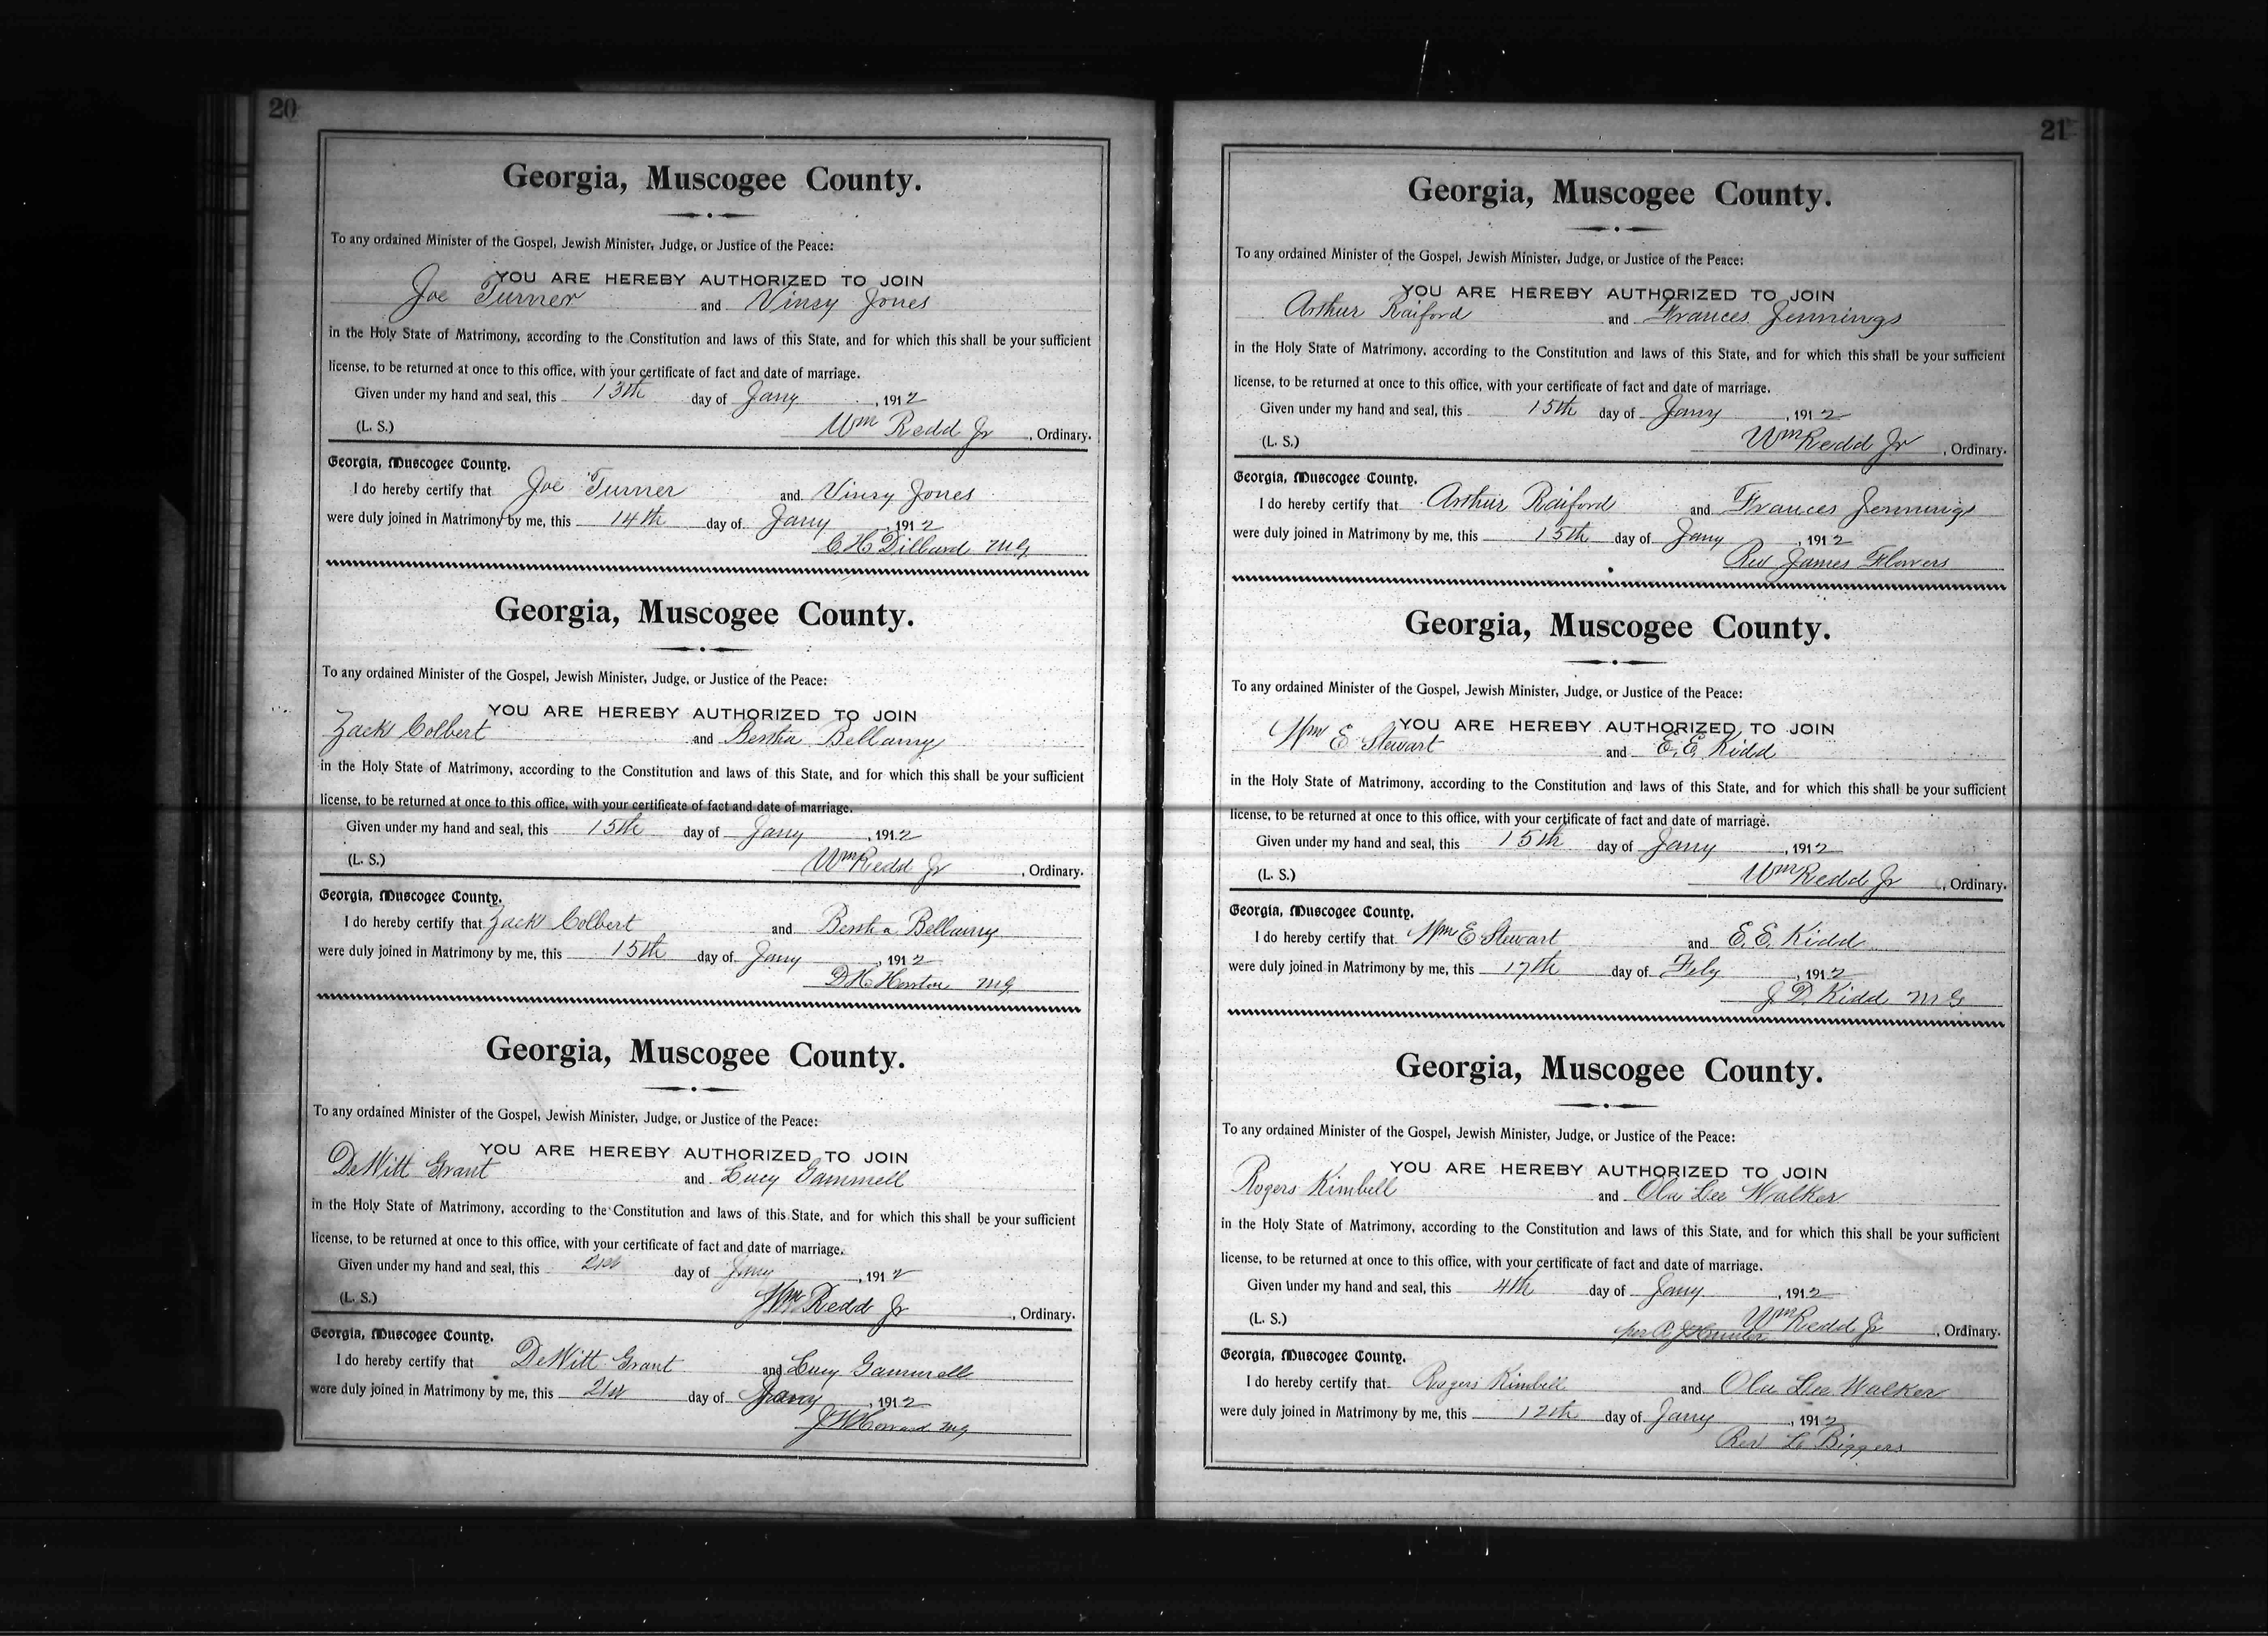 20
Georgia, Muscogee County.
To any ordained Minister of the Gospel, Jewish Minister, Judge, or Justice of the Peace:
YOU ARE HEREBY AUTHORIZED TO JOIN
Joe Turner and Vinsy Jones
in the Holy State of Matrimony, according to the Constitution and laws of this State, and for which this shall be your sufficient
license, to be returned at once to this office, with your certificate of fact and date of marriage.
Given under my hand and seal, this 13th day of Jany, 1912
(L. S.) Wm Redd Jr, Ordinary.
Georgia, Muscogee County.
I do hereby certify that Joe Turner and Vinsy Jones
were duly joined in Matrimony by me, this 14th day of Jany, 1912
C H Dillard MG
Georgia, Muscogee County.
To any ordained Minister of the Gospel, Jewish Minister, Judge, or Justice of the Peace:
YOU ARE HEREBY AUTHORIZED TO JOIN
Zack Colbert and Bertha Bellamy
in the Holy State of Matrimony, according to the Constitution and laws of this State, and for which this shall be your sufficient
license, to be returned at once to this office, with your certificate of fact and date of marriage.
Given under my hand and seal, this 15th day of Jany, 1912
(L. S.) Wm Redd Jr, Ordinary.
Georgia, Muscogee County.
I do hereby certify that Zack Colbert and Bertha Bellamy
were duly joined in Matrimony by me, this 15th day of Jany, 1912
D H MG
Georgia, Muscogee County.
To any ordained Minister of the Gospel, Jewish Minister, Judge, or Justice of the Peace:
YOU ARE HEREBY AUTHORIZED TO JOIN
DeWitt Grant and Lucy Gammell
in the Holy State of Matrimony, according to the Constitution and laws of this State, and for which this shall be your sufficient
license, to be returned at once to this office, with your certificate of fact and date of marriage.
Given under my hand and seal, this 21st day of Jany, 1912
(L. S.) Wm Redd Jr, Ordinary.
Georgia, Muscogee County.
I do hereby certify that DeWitt Grant and Lucy Gammell
were duly joined in Matrimony by me, this 21st day of Jany, 1912
J H Howard MG
21
Georgia, Muscogee County.
To any ordained Minister of the Gospel, Jewish Minister, Judge, or Justice of the Peace:
YOU ARE HEREBY AUTHORIZED TO JOIN
Arthur Raiford and Frances Jennings
in the Holy State of Matrimony, according to the Constitution and laws of this State, and for which this shall be your sufficient
license, to be returned at once to this office, with your certificate of fact and date of marriage.
Given under my hand and seal, this 15th day of Jany, 1912
(L. S.) Wm Redd Jr, Ordinary.
Georgia, Muscogee County.
I do hereby certify that Arthur Raiford and Frances Jennings
were duly joined in Matrimony by me, this 15th day of Jany, 1912
Rev James Flowers
Georgia, Muscogee County.
To any ordained Minister of the Gospel, Jewish Minister, Judge, or Justice of the Peace:
YOU ARE HEREBY AUTHORIZED TO JOIN
Wm E Stewart and E. E. Kidd
in the Holy State of Matrimony, according to the Constitution and laws of this State, and for which this shall be your sufficient
license, to be returned at once to this office, with your certificate of fact and date of marriage.
Given under my hand and seal, this 15th day of Jany, 1912
(L. S.) Wm Redd Jr, Ordinary.
Georgia, Muscogee County.
I do hereby certify that Wm E Stewart and E. E. Kidd
were duly joined in Matrimony by me, this 17th day of Feby, 1912
J. D. Kidd MG
Georgia, Muscogee County.
To any ordained Minister of the Gospel, Jewish Minister, Judge, or Justice of the Peace:
YOU ARE HEREBY AUTHORIZED TO JOIN
Rogers Kimbell and Ola Lee Walker
in the Holy State of Matrimony, according to the Constitution and laws of this State, and for which this shall be your sufficient
license, to be returned at once to this office, with your certificate of fact and date of marriage.
Given under my hand and seal, this 4th day of Jany, 1912
(L. S.) Wm Redd Jr, Ordinary.
per
Georgia, Muscogee County.
I do hereby certify that Rogers Kimbell and Ola Lee Walker
were duly joined in Matrimony by me, this 12th day of Jany, 1912
Rev Biggers